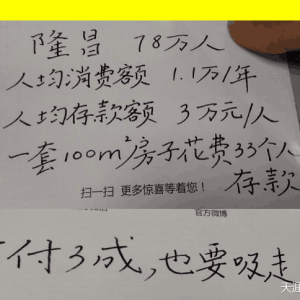 隆昌 78万人
人均消费额 1.1万/年
人均存款额 3万元/人
一套100m²房子花费33个人
存款
扫一扫 更多惊喜等着您!
官方微博
付3成,也要吸走
天涯